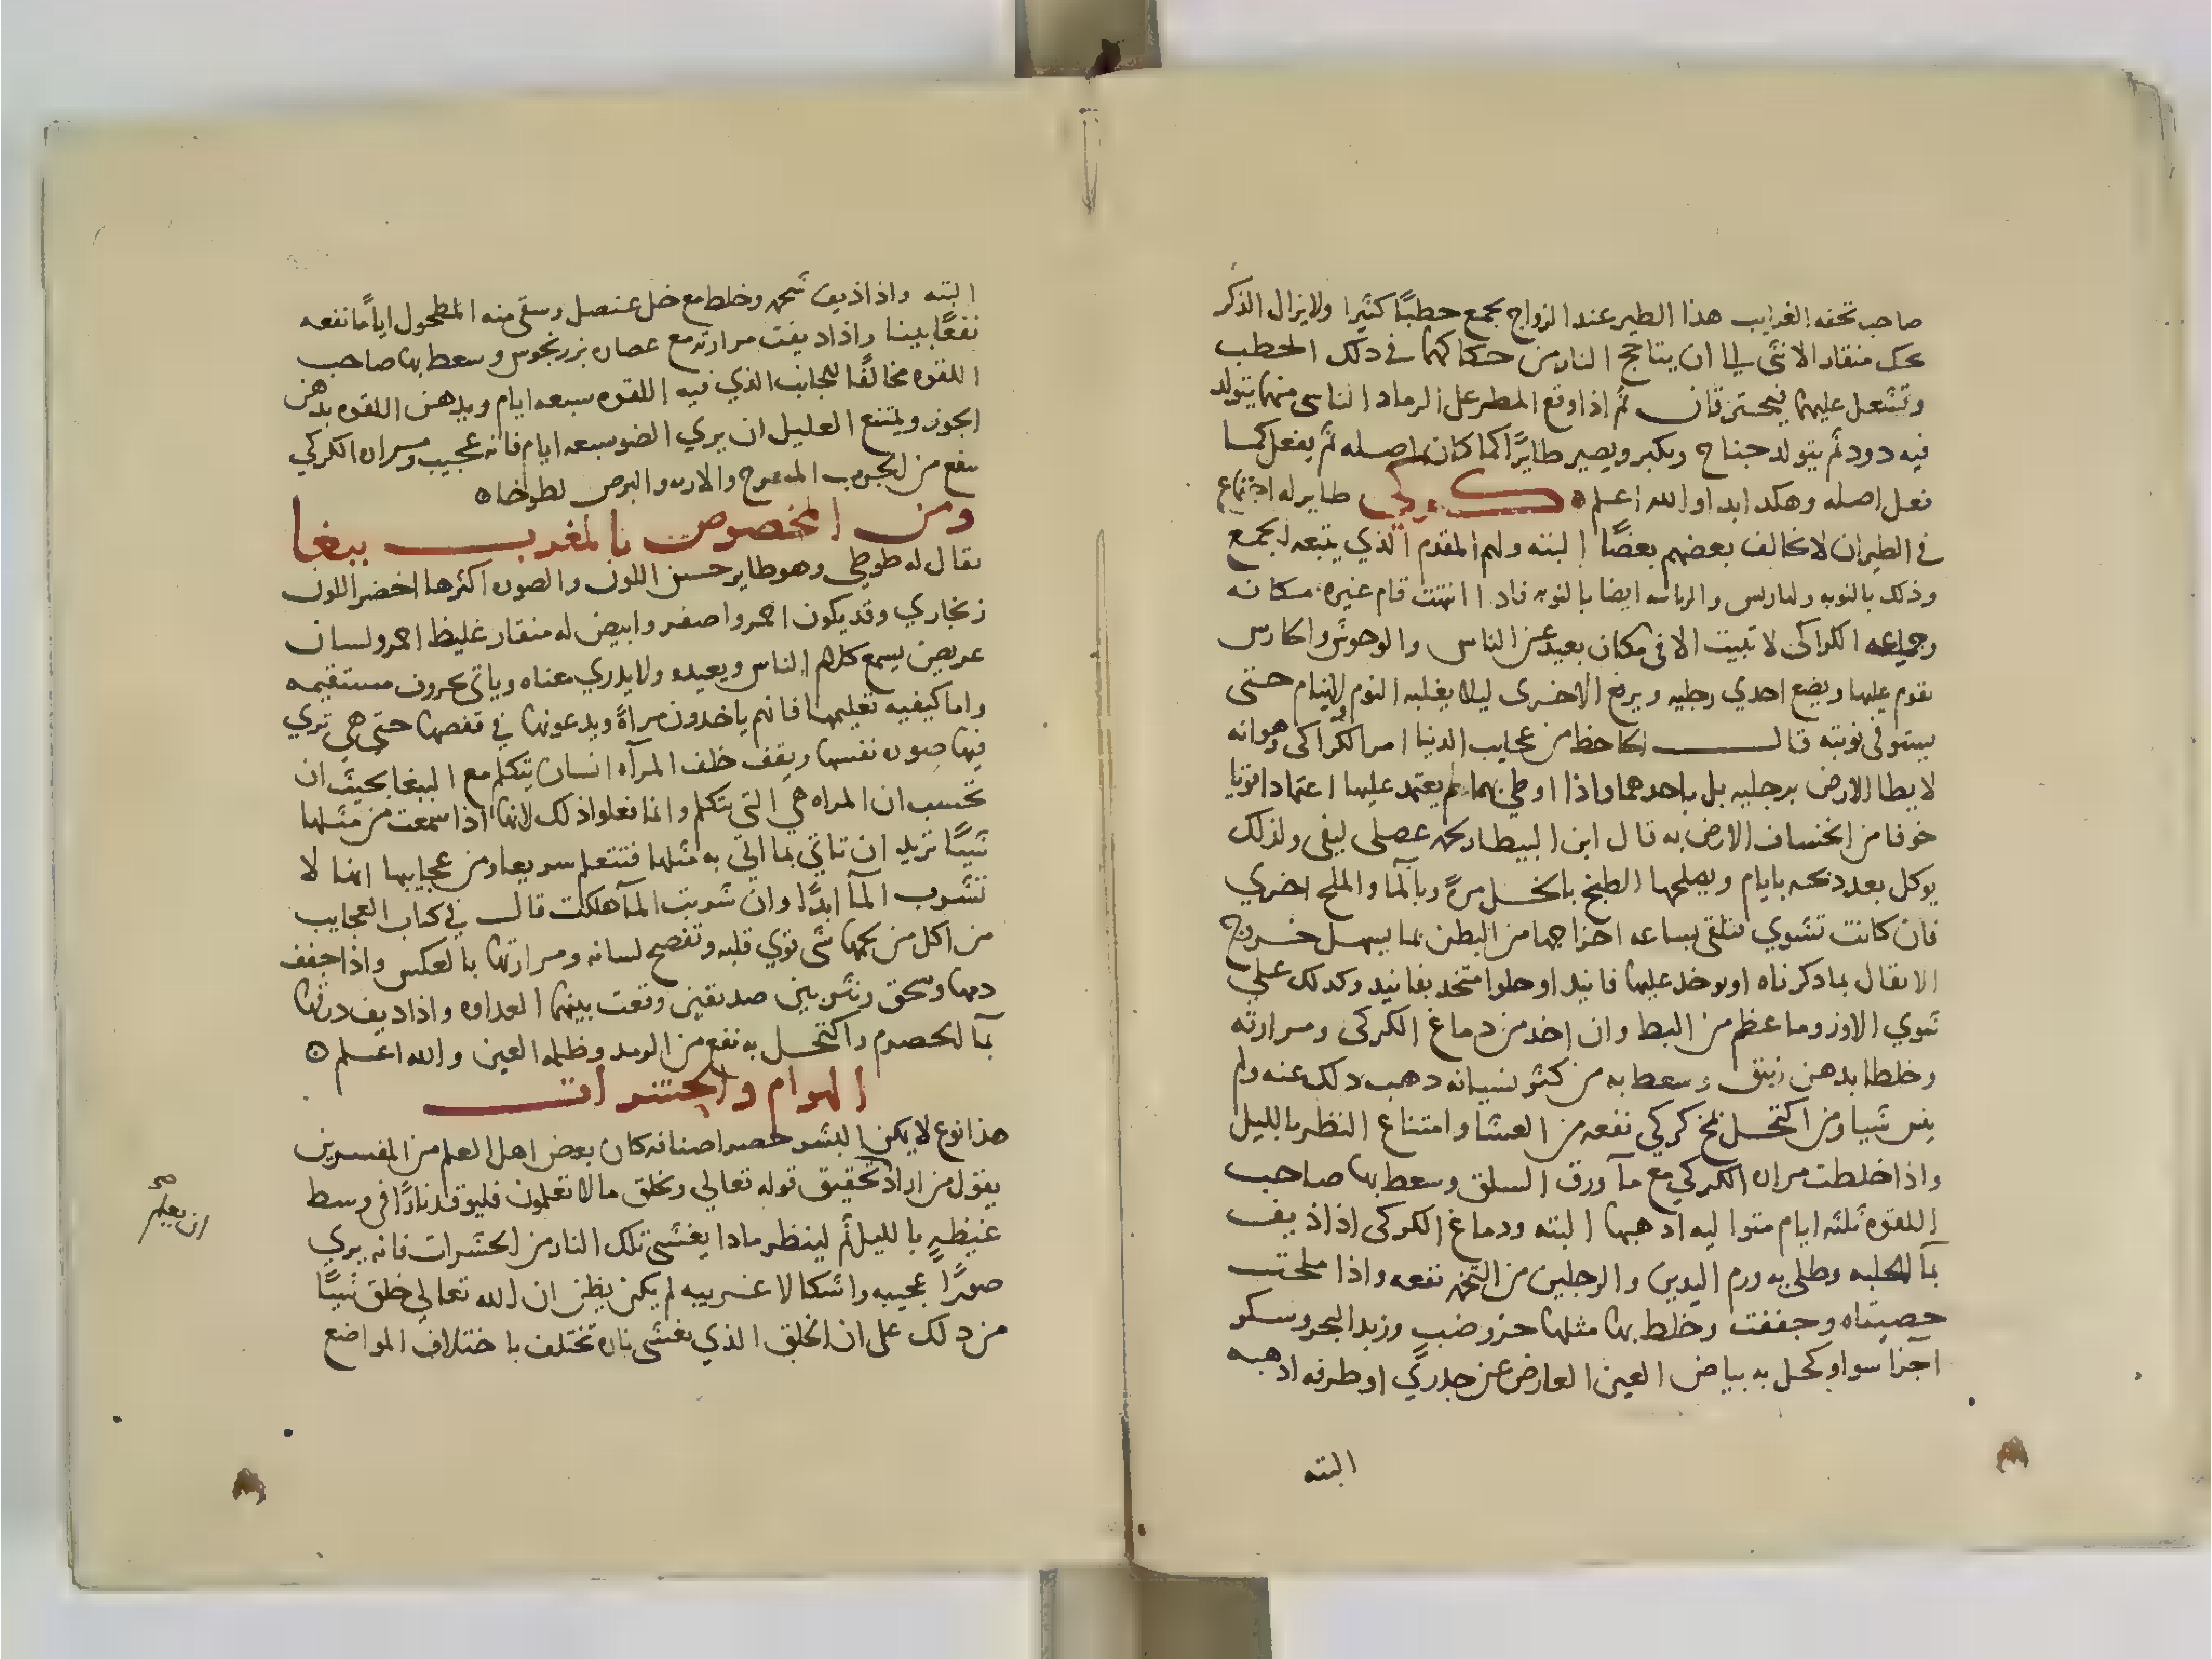 صاحب تحفه الغرايب هذا الطير عند الزواج يجمع حطبًا كثيرا ولا يزال الذكر
يحك منقار الانثى الى ان يتاجج النار من حكاكهما في ذلك الحطب
وتشعل عليهما فيحترقان ثم اذا وقع المطر على الرماد الناس منهما يتولد
فيه دود ثم يتولد جناح ويكبر ويصير طايرًا كما كان اصله ثم يفعل كما
فعل اصله وهكدا ابدا والله اعلم ه كركي طاير له اجتماع
في الطيران لا يخالف بعضهم بعضًا البته ولهم المقدم الذي يتبعه الجمع
وذلك بالنوبه والرياسه ايضا بالنوبه فادا انتهت قام غيره مكانه
وجماعه الكراكى لا تبيت الا فى مكان بعيد عن الناس والوحوش والحارس
يقوم عليها ويضع احدي رجليه ويرفع الاخرى ليلا يغلبه النوم ولا ينام حتى
يستوفى نوبته قال الجاحظ من عجايب الدنيا امر الكراكى وهو انه
لا يطا الارض برجليه بل باحدهما واذا اوطي بهما لم يعتمد عليها اعتمادا قويا
خوفا من انخساف الارض به قال ابن البيطار لحمه عصلى ليفى ولذلك
يوكل بعد دبحه بايام ويصلحها الطبخ بالخل مرة وبالمآ والملح اخري
فان كانت تشوي فتلقى ساعه اخراجها من البطن بما يسهل خروج
الاثقال بما دكرناه او يوخد عليها فانيد او حلوا متخد بفانيد وكدلك على
شوي الاوز وما عظم من البط وان اخد من دماغ الكركى ومرارته
وخلطا بدهن زنبق وسعط به من كثر نسيانه دهب دلك عنه ولم
ينس شيا ومن اكتحل بمخ كركي نفعه من العشا وامتناع النظر بالليل
واذا خلطت مراره الكركي مع مآ ورق السلق وسعط بها صاحب
اللقوه ثلثه ايام متواليه ادهبها البته ودماغ الكركى اذا ذيف
بمآ الحلبه وطلي به ورم اليدين والرجلين من التخم نفعه واذا ملحت
خصيتاه وجففت وخلط بها مثلها خرو ضب وزبد البحر وسكر
اجزا سوا وكحل به بياض العين العارض عن جدري او طرفه ادهبه
البته
البته واذا ذيف شحمه وخلط مع خل عنصل وسقى منه المطحول اياما نفعه
نفعًا بينا واذا ديفت مرارته مع عصاره مرزنجوس وسعط بها صاحب
اللقوه مخالفًا للجانب الذي فيه اللقوه سبعه ايام ويدهن اللقوه بدهن
الجوز ويمتنع العليل ان يري الضو سبعه ايام فانه عجيب ومراره الكركي
ينفع من الجرب المتقرح والبرص لطوخا ه
ومن المخصوص بالمغرب ببغا
يقال له طوطي وهو طاير حسن اللون والصوت اكثرها اخضر اللون
زنجاري وقد يكون احمر واصفر وابيض له منقار غليظ احمر ولسان
عريض يسمع كلام الناس ويعيده ولا يدري معناه وياتى بحروف مستقيمه
واما كيفيه تعليمها فانهم ياخدون مراةً ويدعونها في قفصها حتى هي تري
فيها صوره نفسها ويقف خلف المرآه انسان يتكلم مع الببغا بحيث ان
تحسب ان المراه هي التى يتكلم وانما فعلوا ذلك لانها اذا سمعت من مثلها
شيًا تريد ان تاتي بما اتى به مثلها فتتعلم سريعا ومن عجايبها انها لا
تشرب المآ ابدًا وان شربت المآ هلكت قال في كتاب العجايب
من اكل من لحمها شى قوي قلبه وتفصح لسانه ومرارتها بالعكس واذا جفف
دمها وسحق ونثر بين صديقين وقعت بينهما العداوه واذا ديف درقها
بمآ الحصرم واكتحل به نفع من الرمد وظلمه العين والله اعلم ه
الهوام والحشرات
هذا نوع لا يمكن البشر حصر اصنافه كان بعض اهل العلم من المفسرين
يقول من اراد تحقيق قوله تعالي ويخلق ما لا تعلمون فليوقد نارًا فى وسط
غيظه بالليل ثم لينظر مادا يغشى تلك النار من الحشرات فانه يري
صورًا عجيبه واشكالا غريبه لم يكن يظن ان الله تعالي خلق شيًا
من دلك على ان الخلق الذي يغشى ناره تختلف باختلاف المواضع
ان يعلم